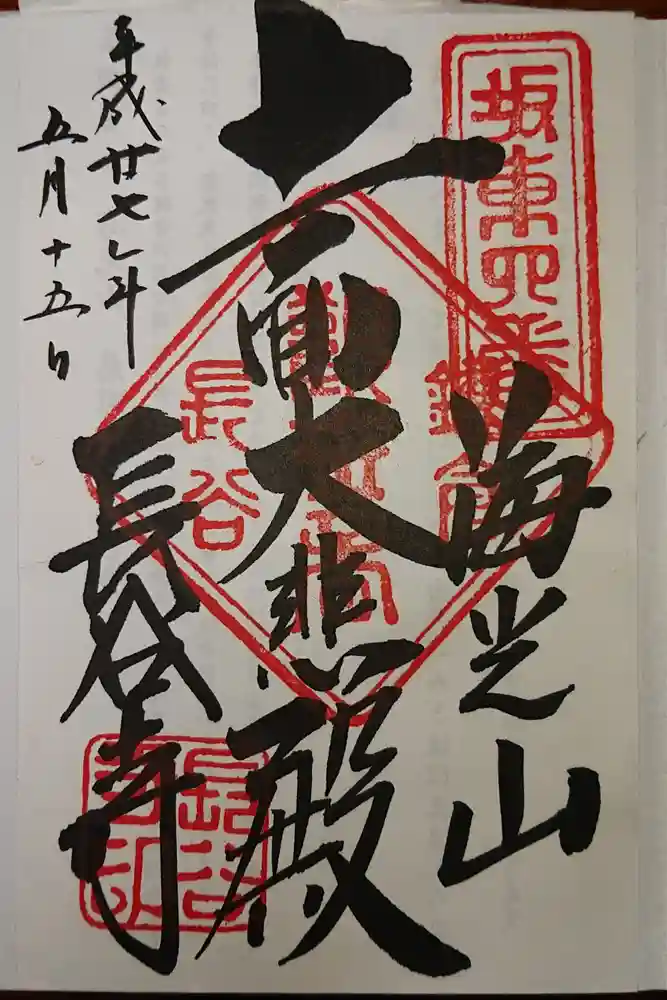 坂東四番
海光山
鎌倉
十一面大悲殿
長谷
長谷寺
長谷寺印
平成廿七年
五月十五日